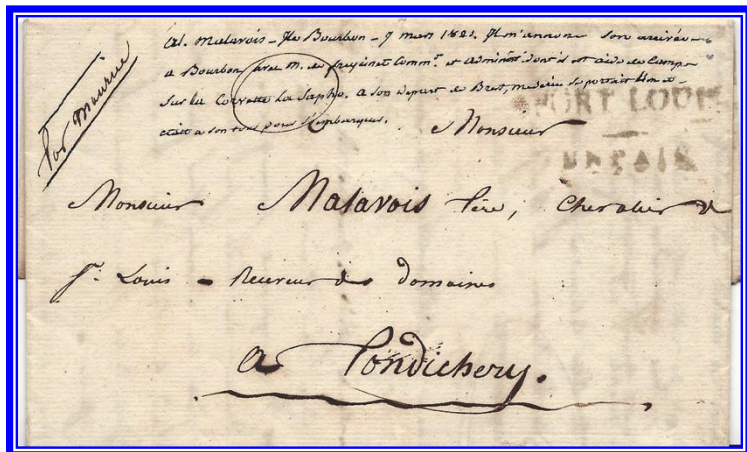 Al. Malavois - Ile Bourbon - 9 mars 1821. Il m'annonce son arrivée
a Bourbon avec M. de freycinet Comm.t et administ. dont il est aide de Camp
Sur la Corvette La Sapho. a son depart de Brest, se portait bien et
était a son tour pour s'embarquer.
Por Maurice
PORT LOUIS
Monsieur
Monsieur Malavois Père, Chevalier de
St. Louis - Receveur des Domaines
a Pondichery.